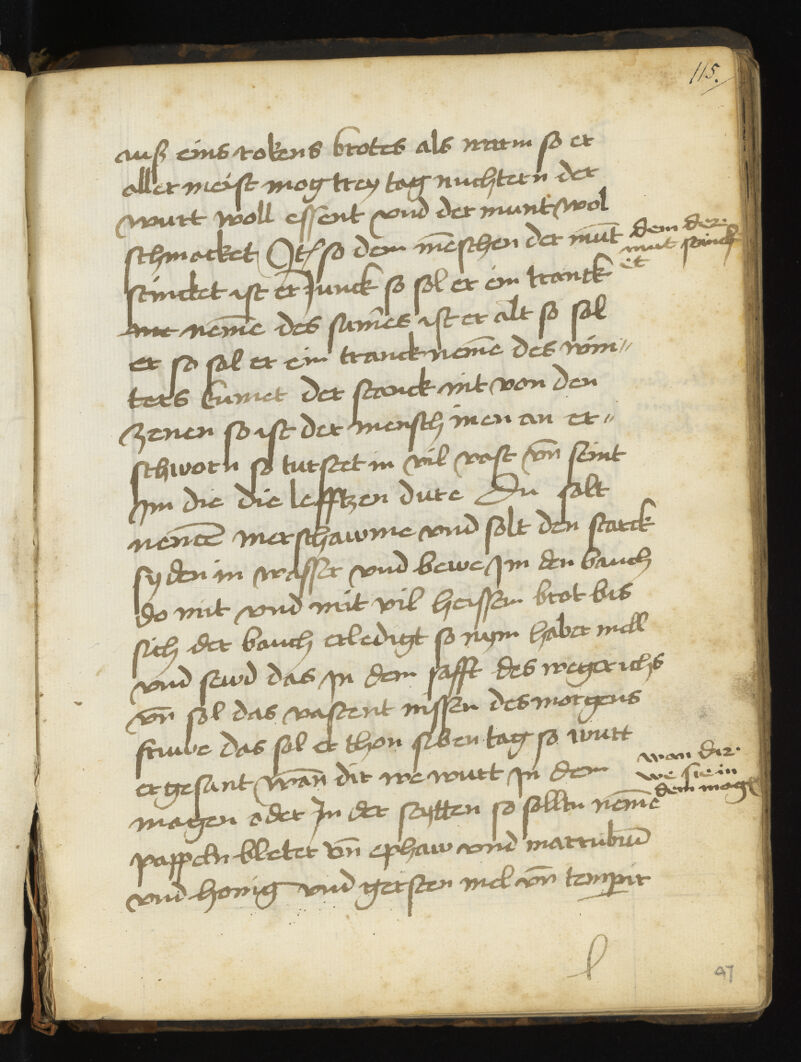 115.
auß eins rokens brotes als warm so er
aller meist mog trey tag nuchtern der
wurt woll essent vnd der munt wol
schmacket Jt so dem menschen der mūt
dem der
mūt stinck
et
stincket ist er Junck so sol er ein tranck
nemē des sumers ist er alt so sol
er so sol er ein tranck nemē des win〃
ters kumet der stanck nit von den
zenen so ist der mensch inen an er〃
schworn so turstet in vil vast vn̄ seint
Jm die die lefftzen dure Du solt
nemen merschawme vnd solt den starck
syden in wasser vnd bewe Jm den bauch
do mit vnd mit vil heissem brot bis
sich der bauch erledigt so nym haber mell
vnd sewd das Jn dem safft des wegerichs
vn̄ sol das vastent nissen des morgens
fruwe das sol er thon siben tag so wurt
er gesant Wan̄ dir we wurt Jn dem
wan dir
we sie in
dem mag
magen oder Jn der seytten so solltu nemē
pappeln bleter vn̄ ephaw vnd marrubiū
vnd honig vnd gersten mel vn̄ temperir
97